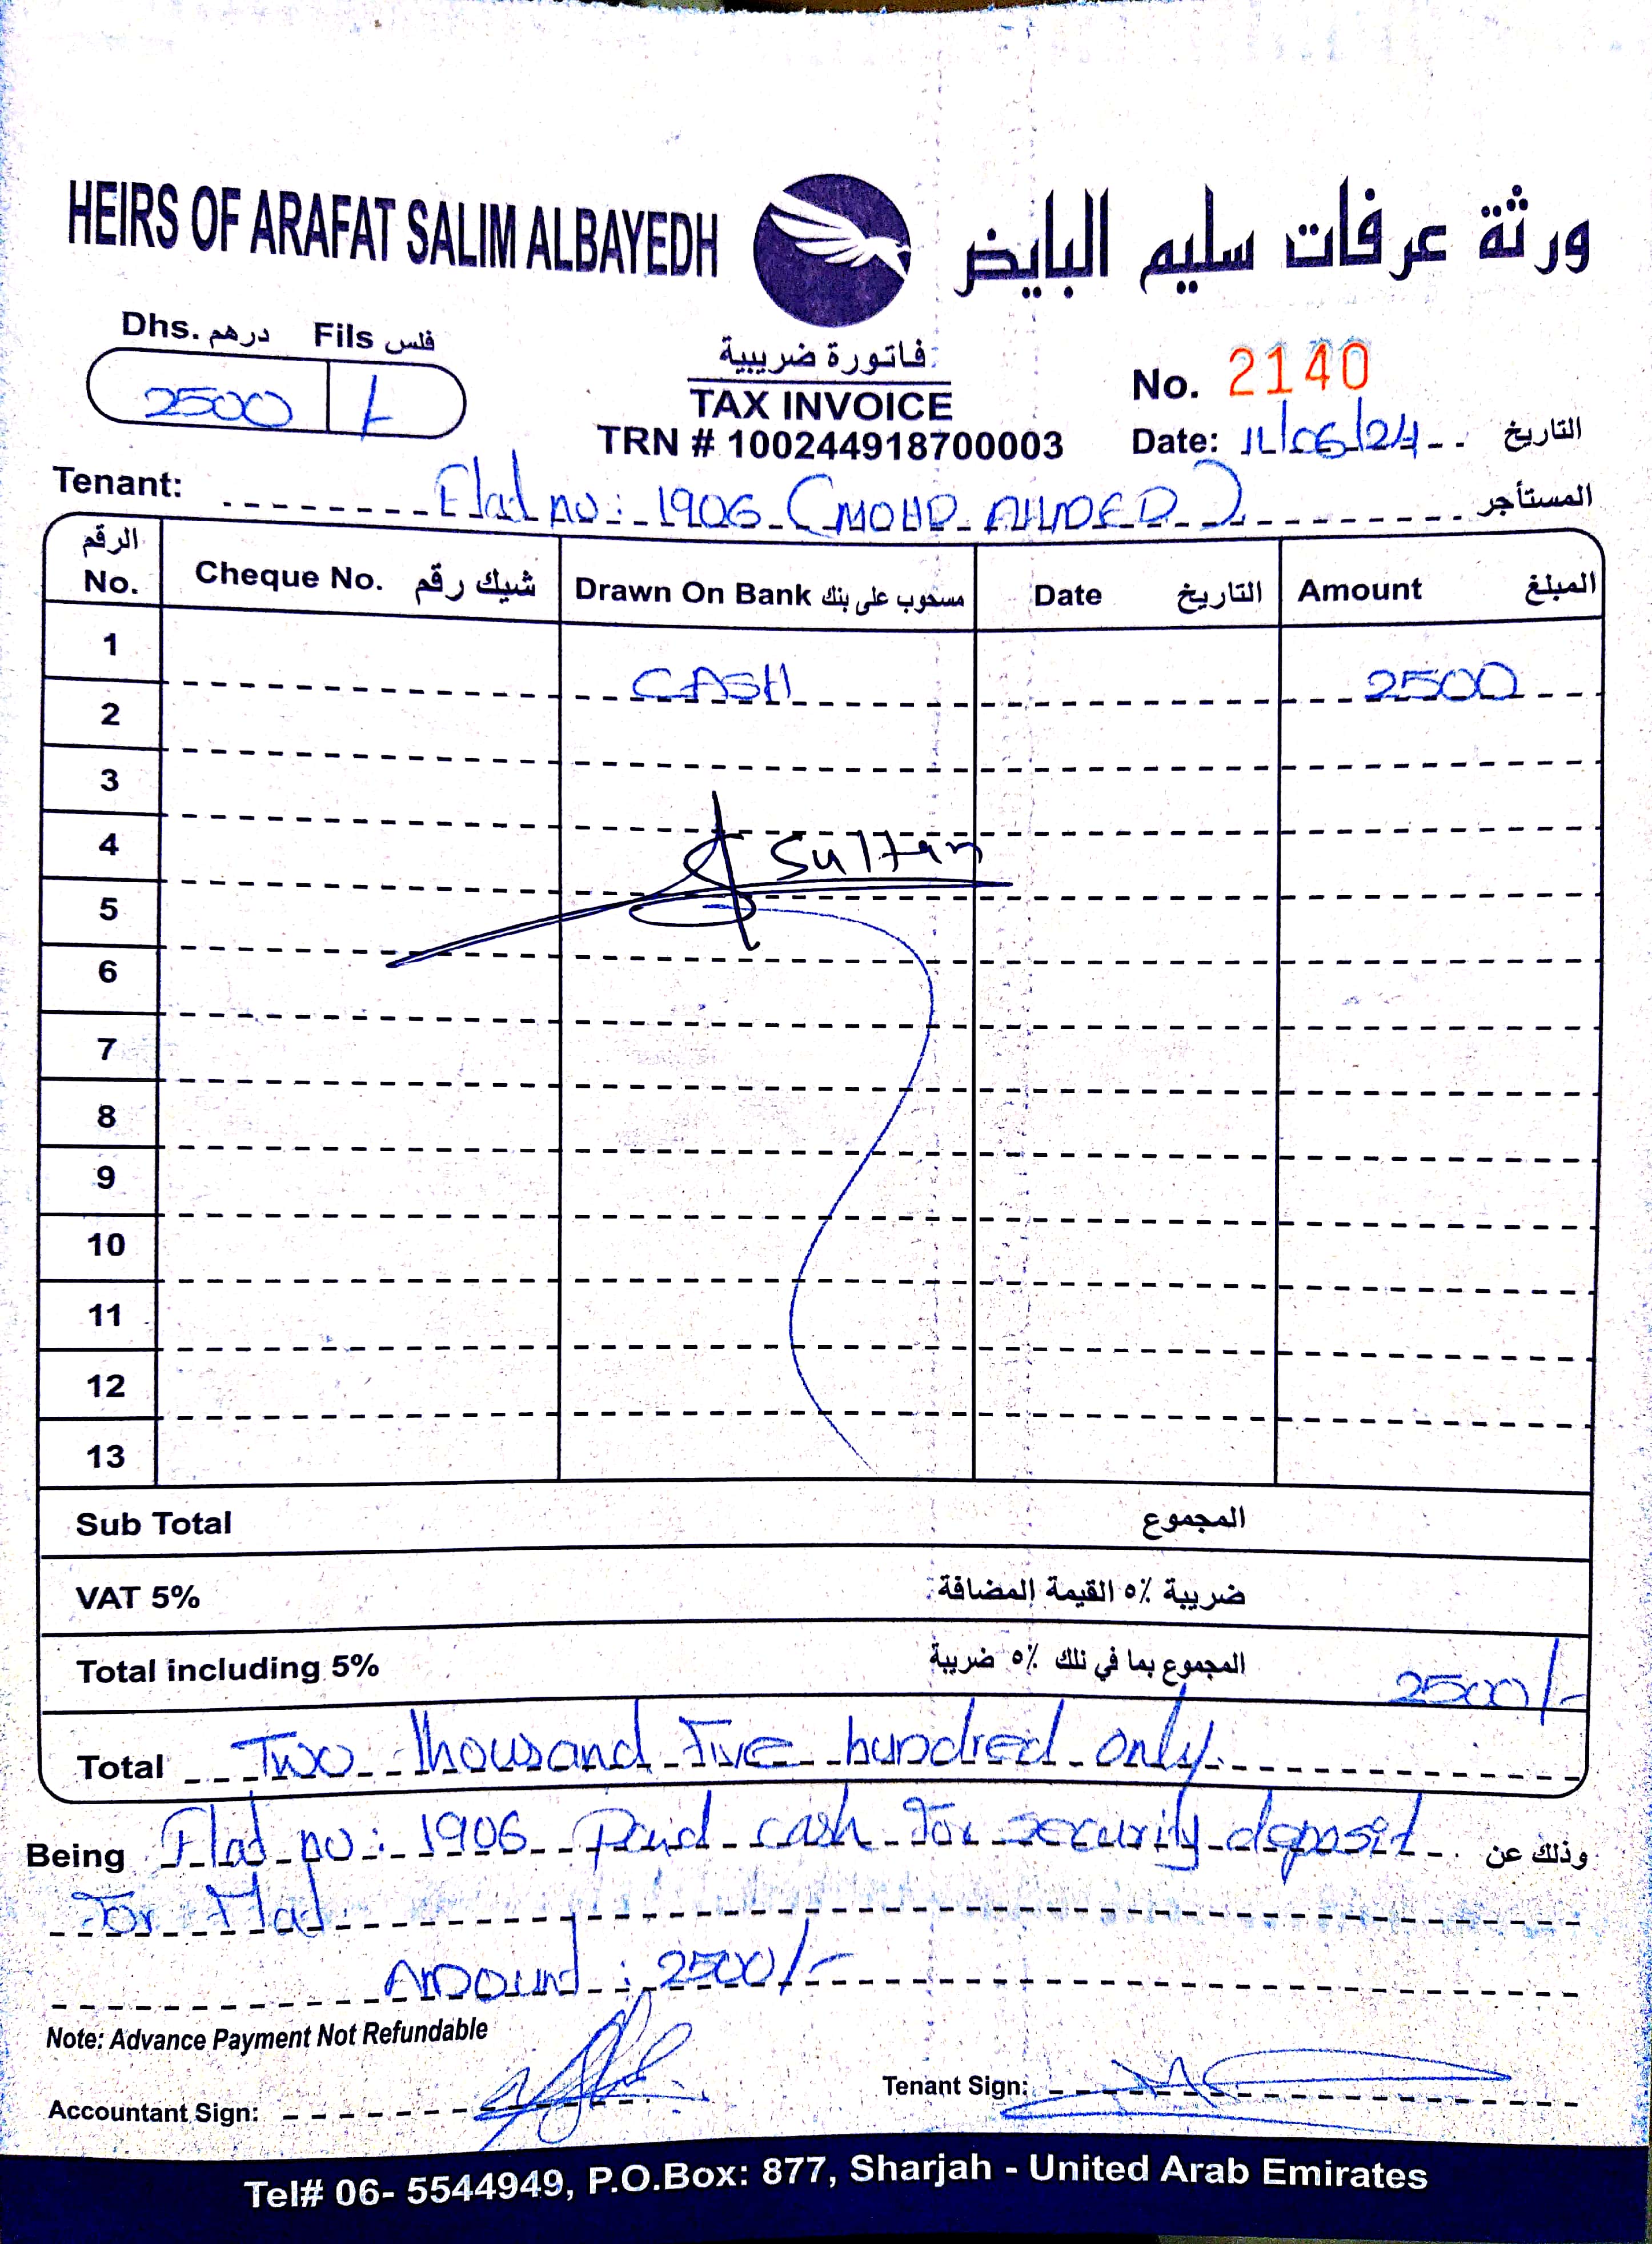 HEIRS OF ARAFAT SALIM ALBAYEDH ورثة عرفات سليم البايض
Dhs. درهم Fils فلس
2500 /-
فاتورة ضريبية
TAX INVOICE
TRN # 100244918700003
No. 2140
Date: 11/06/24 التاريخ
Tenant: Flat no: 1906 (MOHD AHMED) المستأجر
الرقم No. Cheque No. شيك رقم Drawn On Bank مسحوب على بنك Date التاريخ Amount المبلغ
1 CASH 2500
2
3
4 Sultan
5
6
7
8
9
10
11
12
13
Sub Total المجموع
VAT 5% ضريبة ٥٪ القيمة المضافة
Total including 5% المجموع بما في ذلك ٥٪ ضريبة 2500/-
Total Two Thousand Five hundred only.
Being Flat no: 1906 Paid cash for security deposit وذلك عن
for Flat.
Amount: 2500/-
Note: Advance Payment Not Refundable
Accountant Sign: Tenant Sign:
Tel# 06- 5544949, P.O.Box: 877, Sharjah - United Arab Emirates